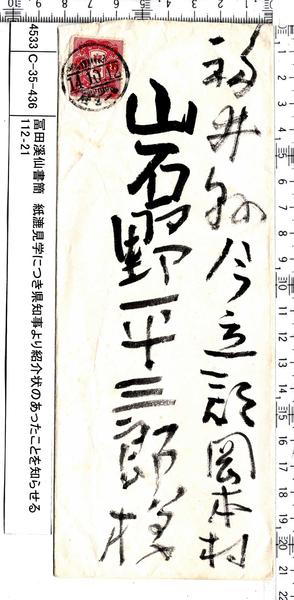 福井縣今立郡岡本村
岩野平三郎様
4533 C-35-436
冨田溪仙書簡　紙漉見学につき県知事より紹介状のあったことを知らせる
112-21